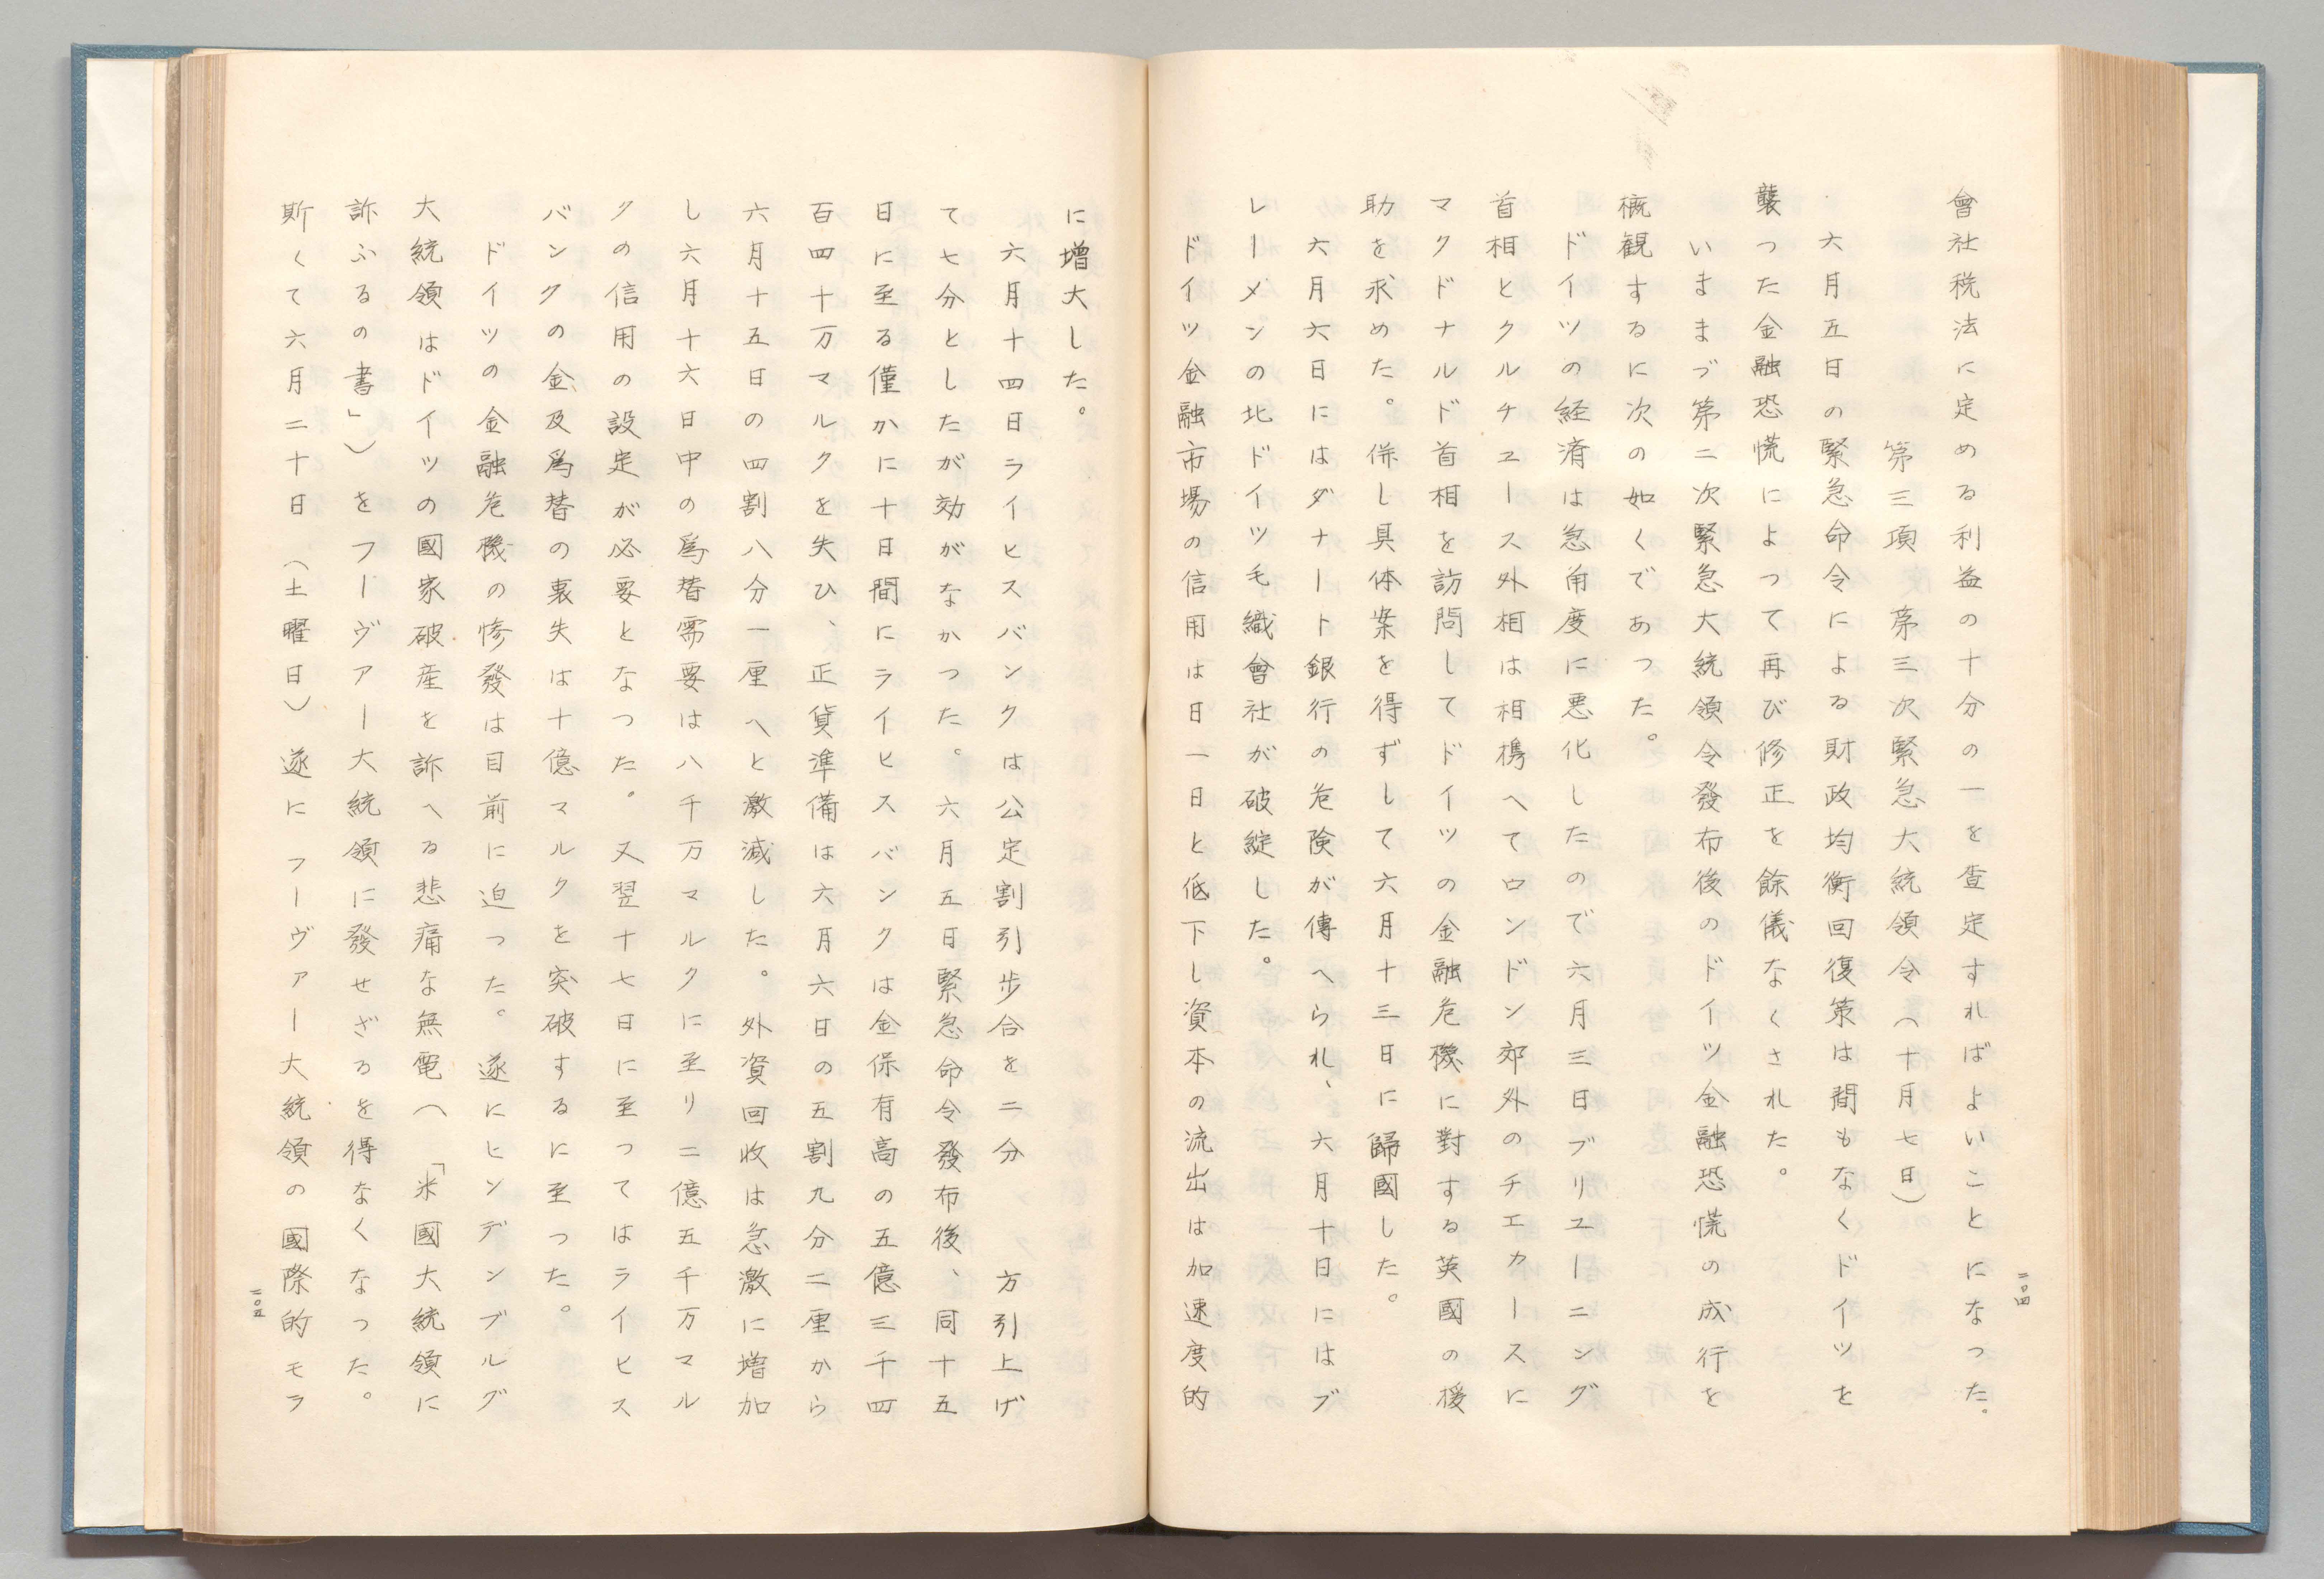 會社税法に定める利益の十分の一を査定すればよいことになった。
第三項 第三次緊急大統領令(十月七日)
六月五日の緊急命令による財政均衡回復策は間もなくドイツを
襲つた金融恐慌によつて再び修正を餘儀なくされた。
いままづ第二次緊急大統領令發布後のドイツ金融恐慌の成行を
概観するに次の如くであつた。
ドイツの経済は急角度に悪化したので六月三日ブリユーニング
首相とクルチユース外相は相携へてロンドン郊外のチエカースに
マクドナルド首相を訪問してドイツの金融危機に對する英國の援
助を求めた。併し具体案を得ずして六月十三日に歸國した。
六月六日にはダナート銀行の危険が傳へられ、六月十日にはブ
レーメンの北ドイツ毛織會社が破綻した。
ドイツ金融市場の信用は日一日と低下し資本の流出は加速度的
二〇四
に増大した。
六月十四日ライヒスバンクは公定割引歩合を二分 方引上げ
て七分としたが効がなかつた。六月五日緊急命令發布後、同十五
日に至る僅かに十日間にライヒスバンクは金保有高の五億三千四
百四十万マルクを失ひ、正貨準備は六月六日の五割九分二厘から
六月十五日の四割八分一厘へと激減した。外資回收は急激に増加
し六月十六日中の爲替需要は八千万マルクに至り二億五千万マル
クの信用の設定が必要となつた。又翌十七日に至つてはライヒス
バンクの金、及爲替の喪失は十億マルクを突破するに至つた。
ドイツの金融危機の惨發は目前に迫つた。遂にヒンデンブルグ
大統領はドイツの國家破産を訴へる悲痛な無電(「米國大統領に
訴ふるの書」)をフーヴァー大統領に發せざるを得なくなつた。
斯くて六月二十日(土曜日)遂にフーヴァー大統領の國際的モラ
二〇五